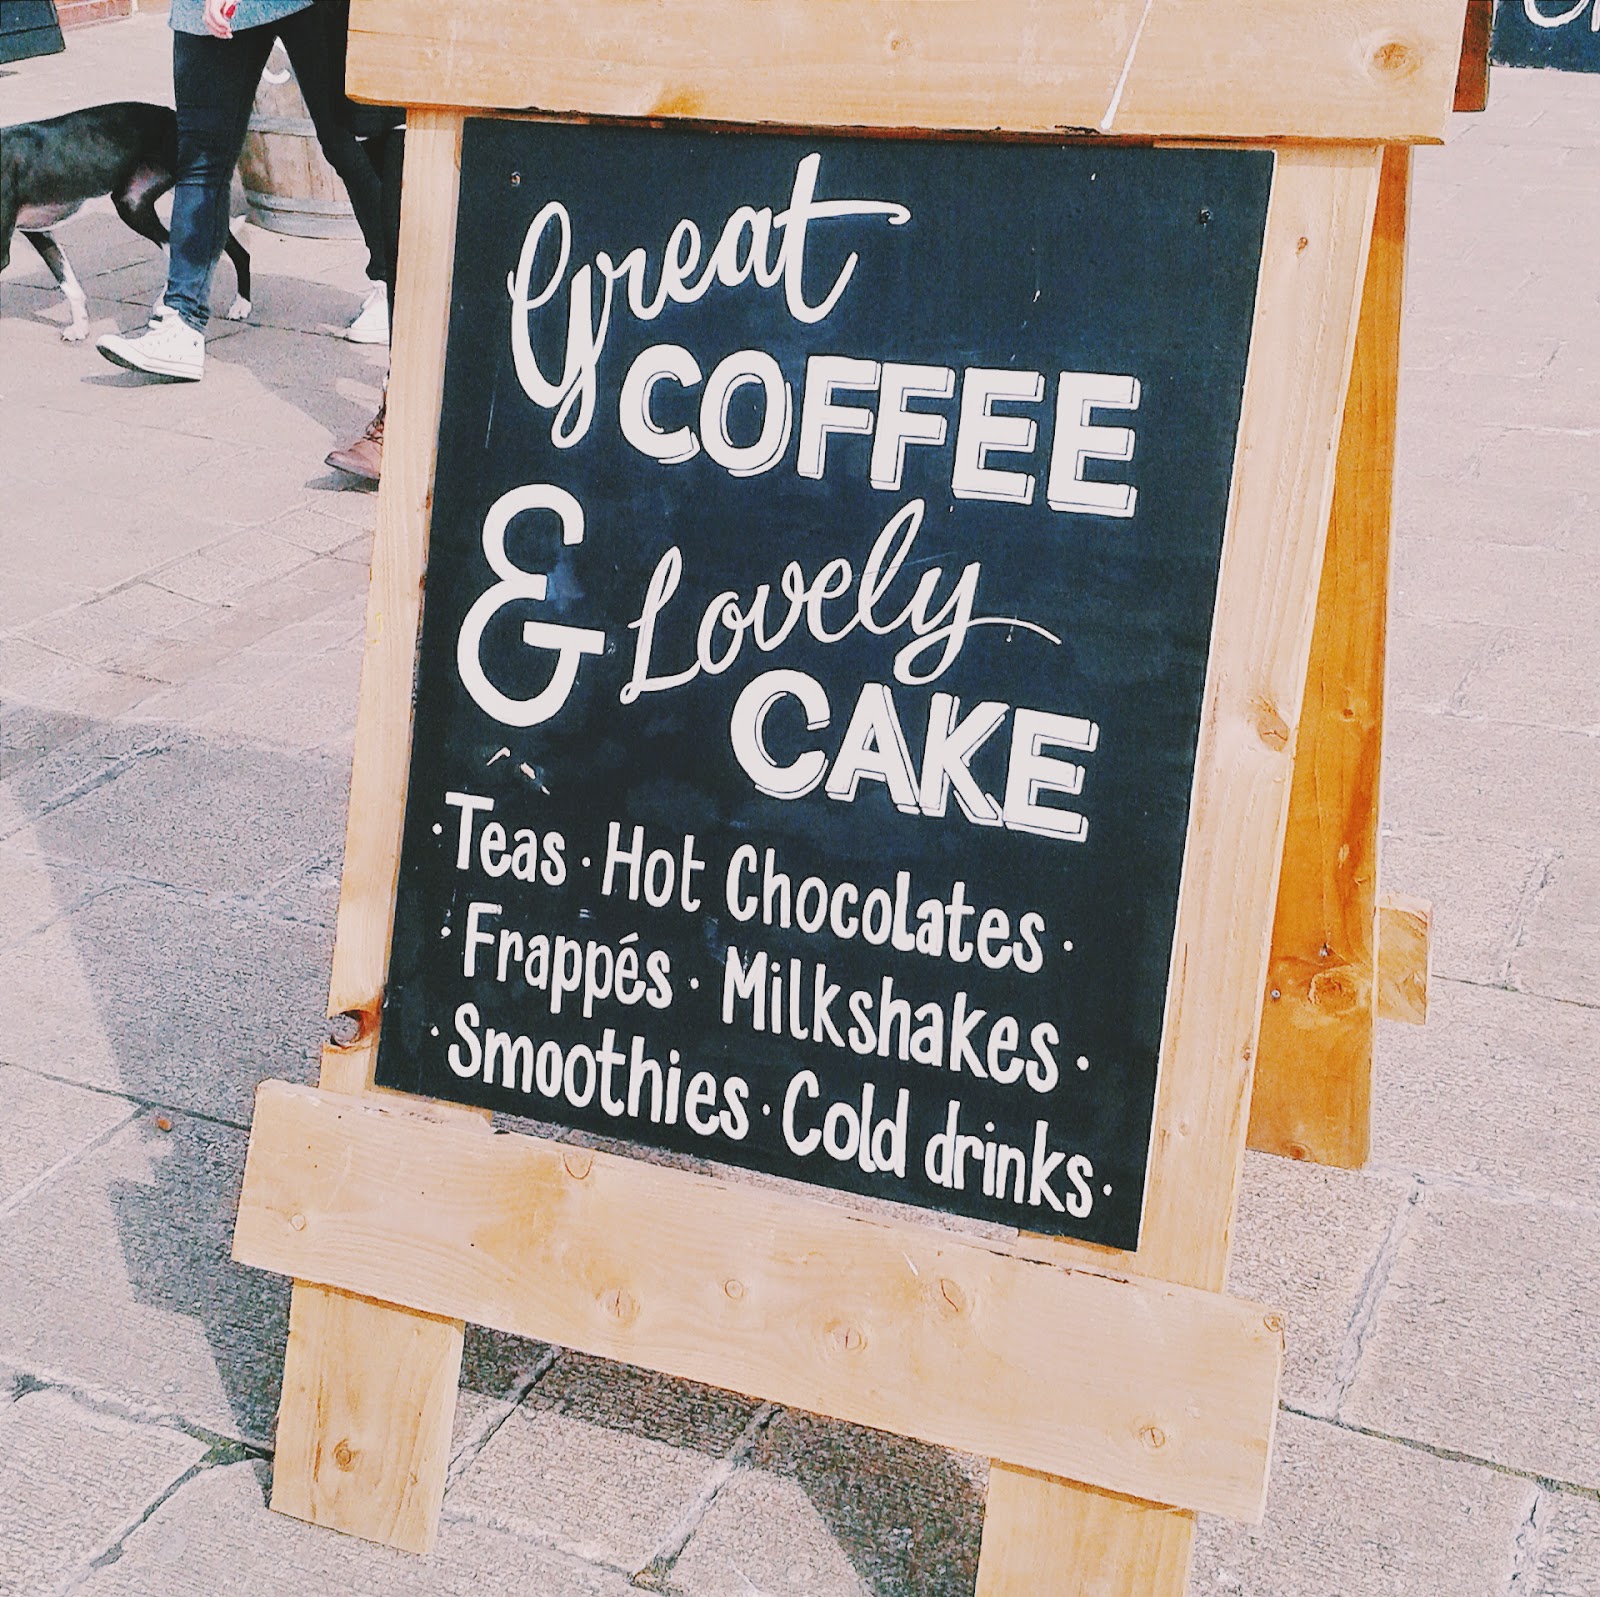 Great
COFFEE
& Lovely
CAKE
·Teas·Hot Chocolates·
·Frappés·Milkshakes·
·Smoothies·Cold drinks·